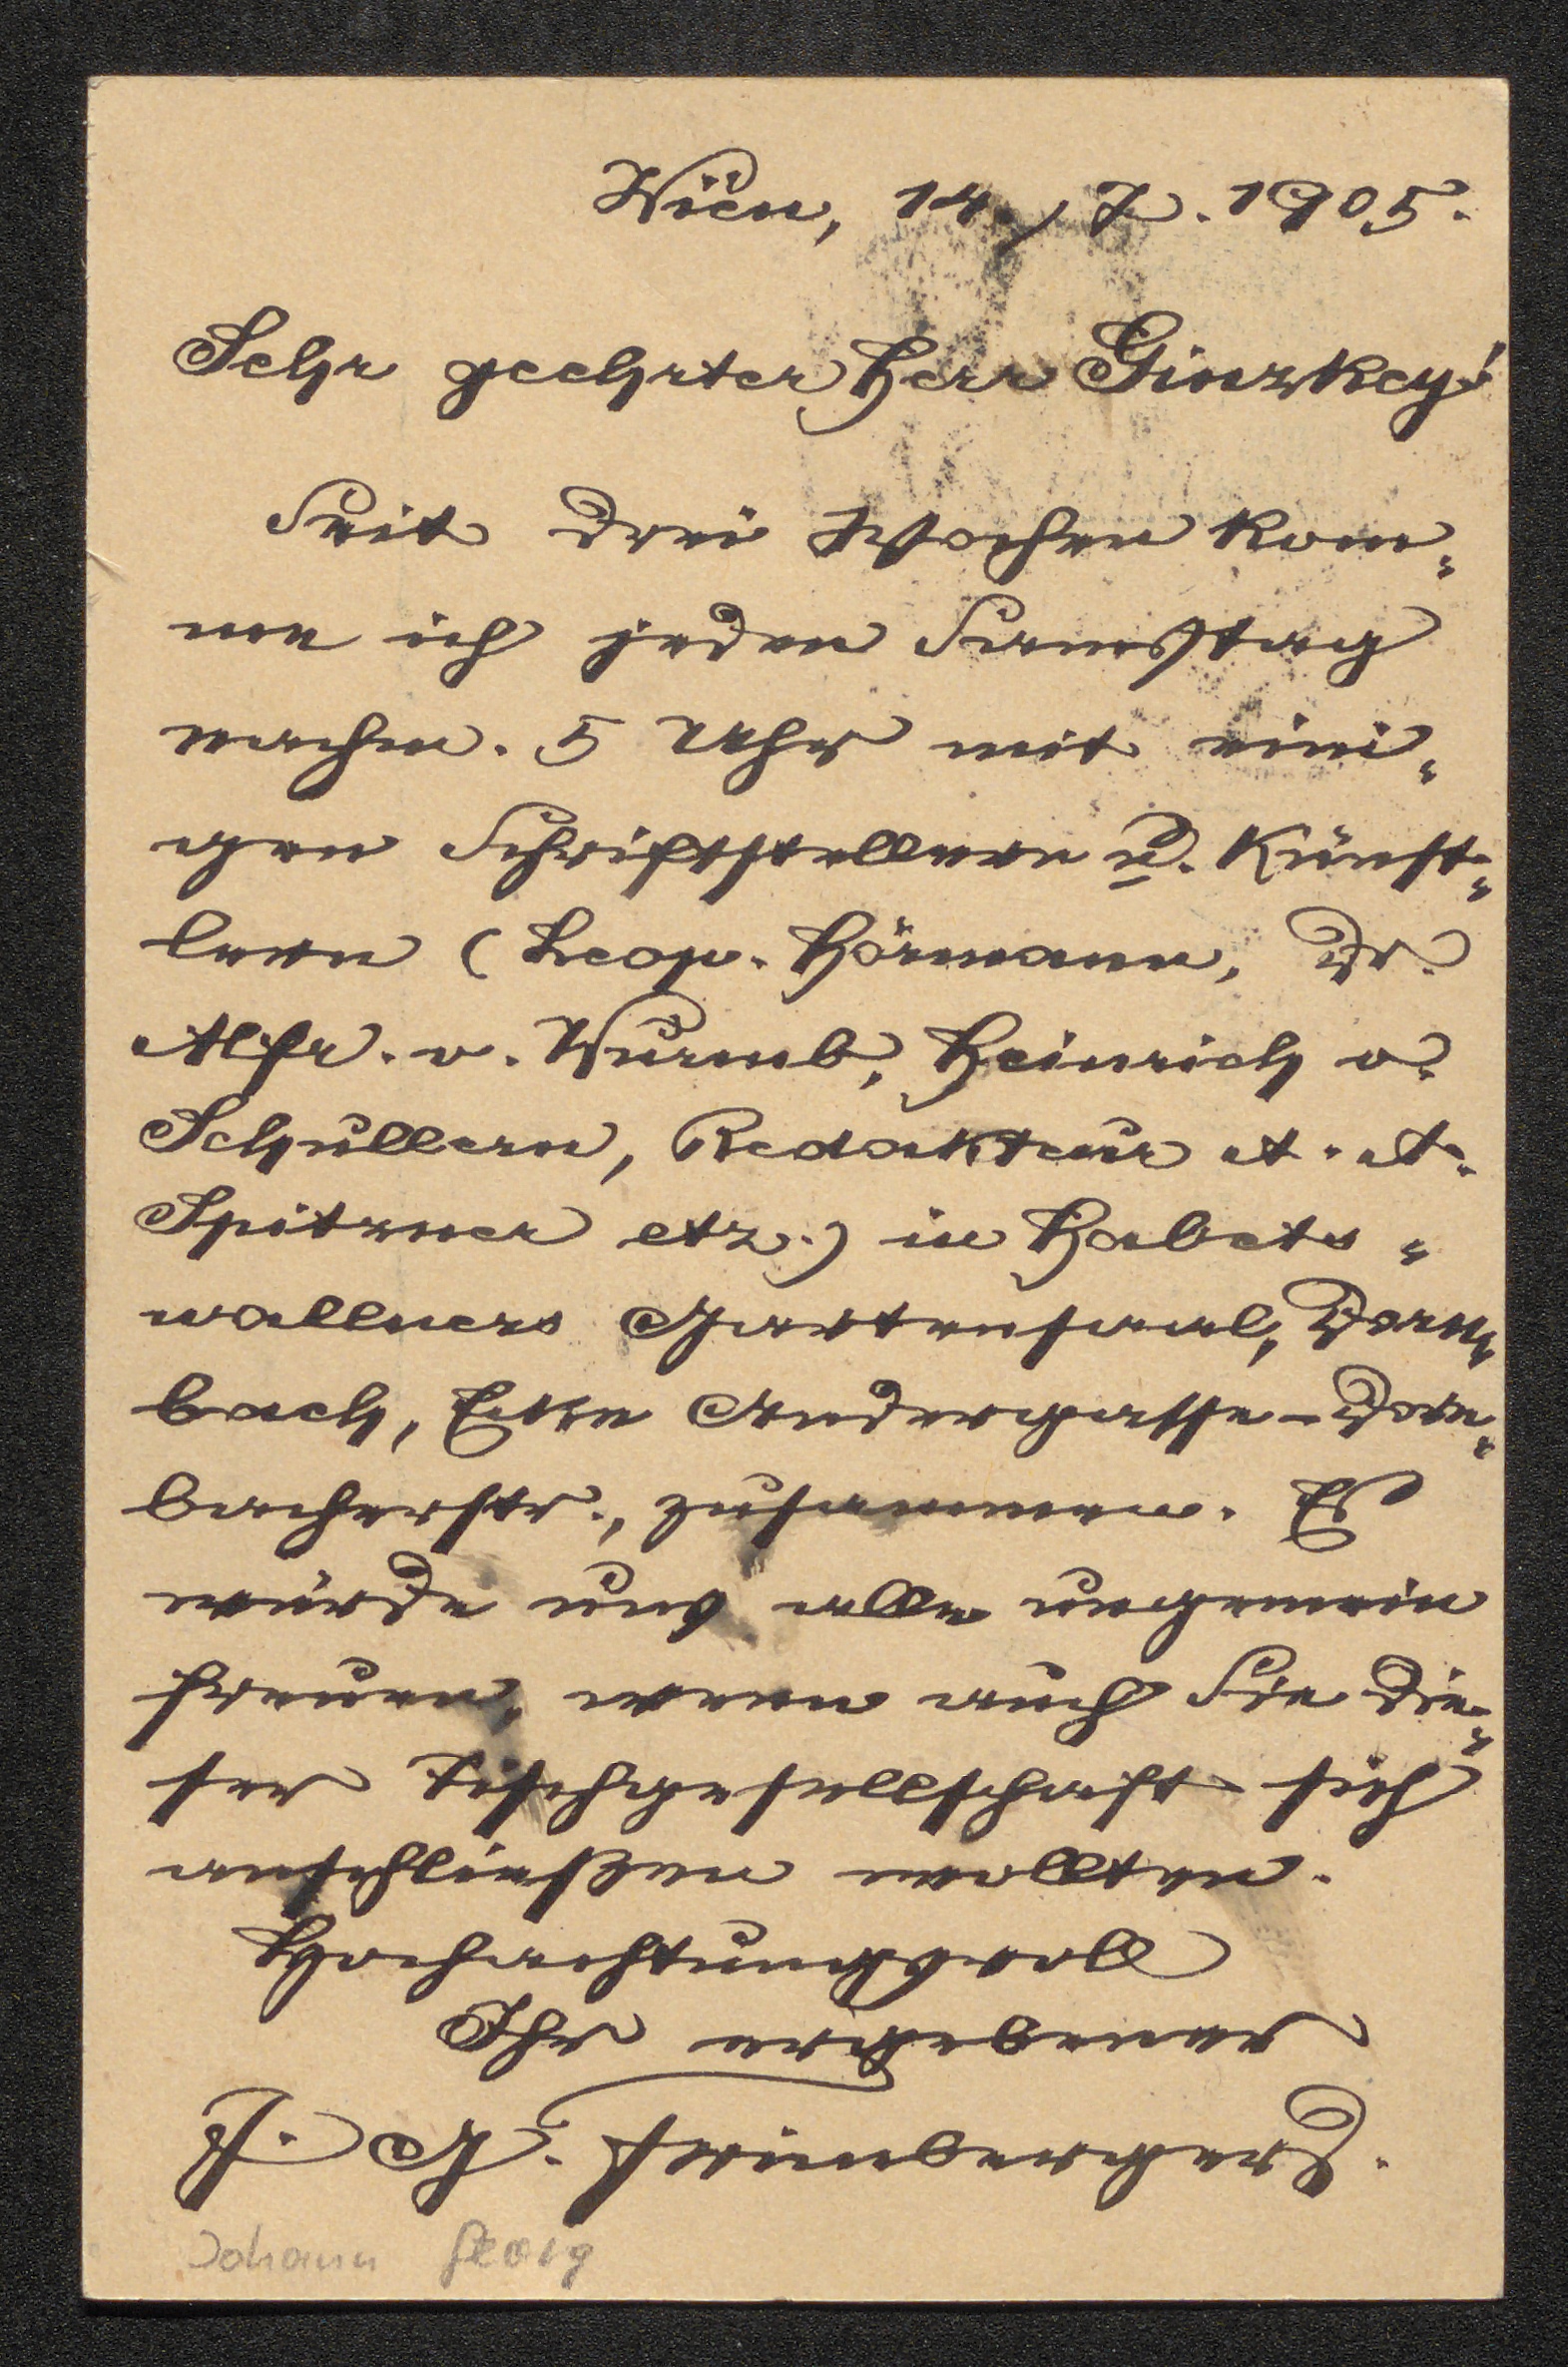 Wien, 14./7. 1905.
Sehr geehrter Herr Ginzkey!
Seit drei Wochen kom-
me ich jeden Samstag
nachm. 5 Uhr mit eini-
gen Schriftstellern u. Künst-
lern (Leop. Hörmann, Dr.
Alfr. v. Wurmb, Heinrich v.
Schullern, Redakteur A. A.
Spitzner etz.) in Habets-
wallners Gartensaal, Dorn-
bach, Ecke Andergasse-Dorn-
bacherstr., zusammen. Es
würde uns alle ungemein
freuen, wenn auch Sie die-
ser Tischgesellschaft sich
anschließen wollten.
Hochachtungsvoll
Ihr ergebener
J. G. Frimberger.
Johann Georg